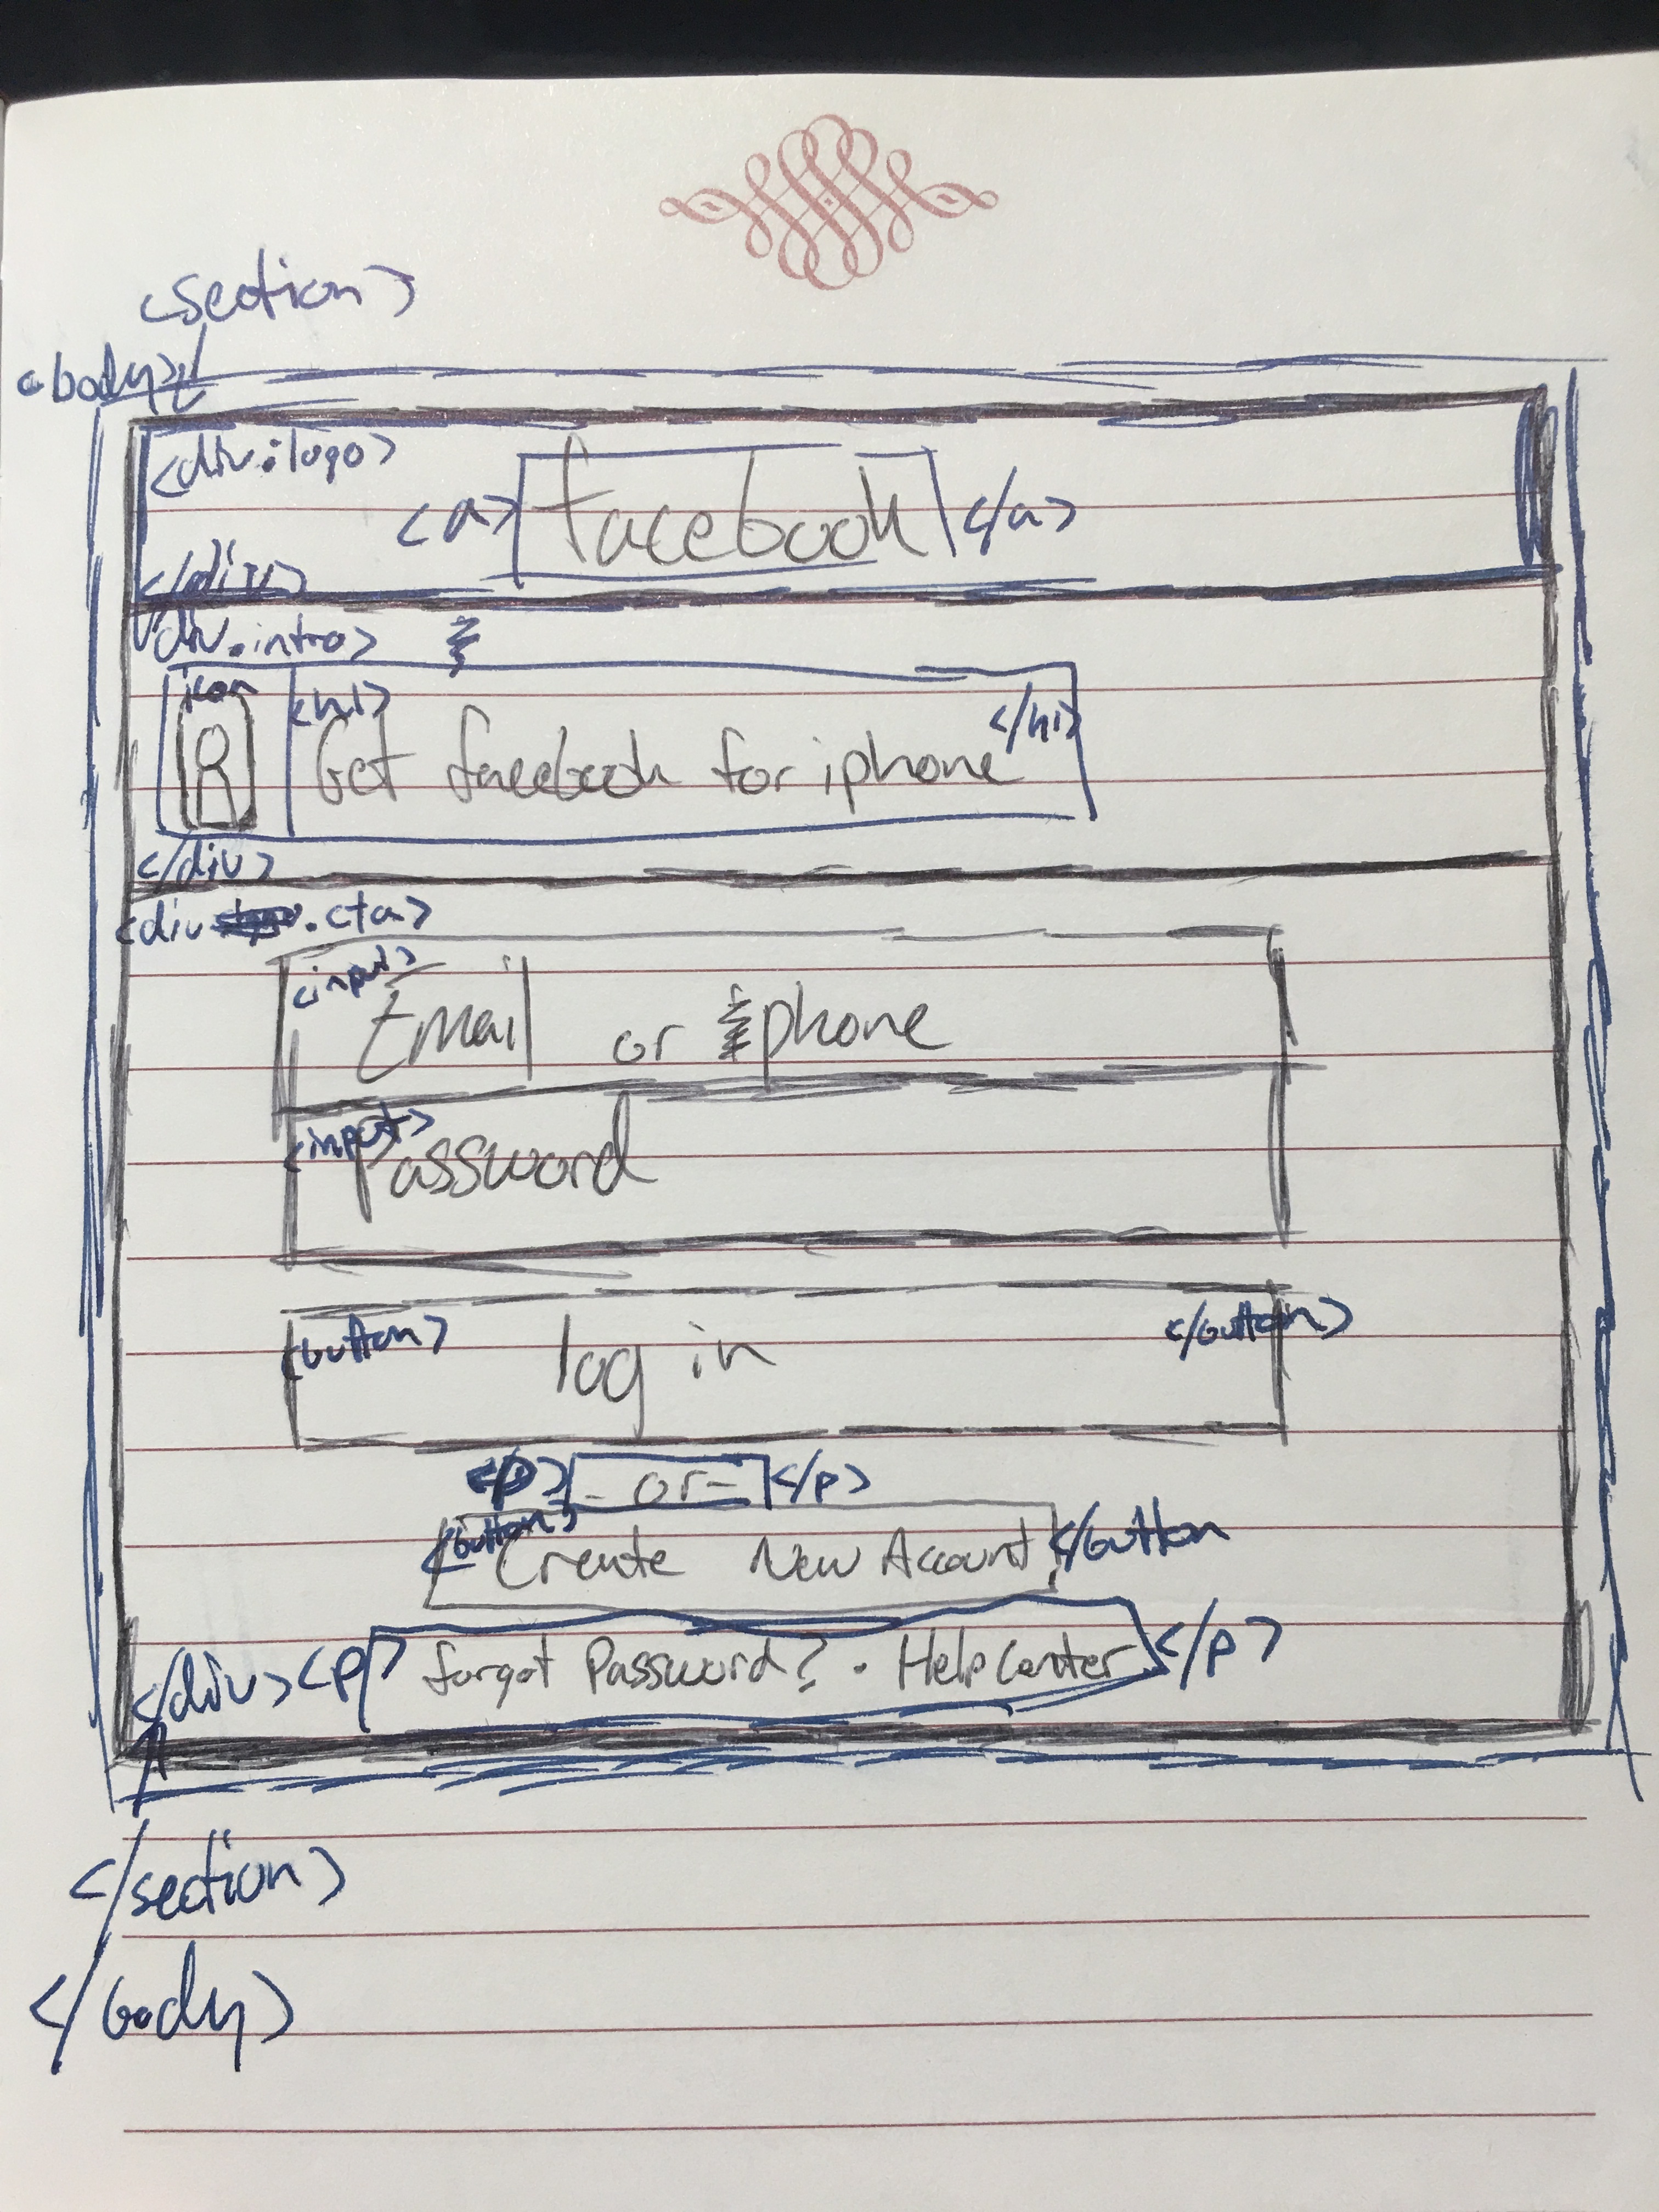 <section>
<body>
<div.logo>
<a> facebook </a>
</div>
div.intro>
icon <h1> Get facebook for iphone </h1>
</div>
<div .cta>
<input>
Email or phone
<input>
Password
<button> log in </button>
<p> - or - </p>
<button> Create New Account </button
</div> <p> forgot Password? · Help Center </p>
</section>
</body>